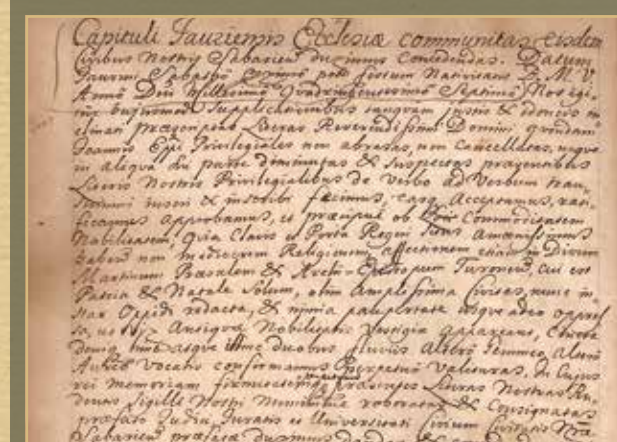 Capituli Jauriensis Ecclesiæ communitas eisdem
Civibus Nostris Sabarien duximus Concedendas. Datum
Jaurini Sabatho proximo post festum Nativitatis B. M. V.
Anno Dni Millesimo Quadringentesimo Septimo Nos igi-
tur hujusmodi Supplicationibus tanquam justis & idoneis in
clinati præexpositas Literas Reverendissimi Domini quondam
Joannis Eppi Privilegiales non abrasas, non Cancellatas, neque
in aliqua sui parte diminutas & suspectas præsentibus
Literis Nostris Privilegialibus de verbo ad Verbum tran-
sumi inseri & inscribi facimus, easq Acceptamus, rati-
ficamus approbamus, et præcipue ob Loci Commoditatem
Nobilitatem, Quia Clavis et Porta Regni situs Amænissimus
habens non mediocrem Religionem, affectionem etiam in Divum
Martinum Præsulem & Archi-Eppum Turonens, cui est
Patria & Natale Solum, olim Amplissima Civitas, nunc in-
star Oppidi redacta, & nimia paupertate usque adeo oppres
sa, ut vix Antiquæ Nobilitatis Vestigia appareant,
atque duobus fluviis Altero Altero
vocato confirmamus perpetuo Valituras. In Cujus
rei Memoriam firmitatemq præsentes Literas Nostras Pen-
dentis Sigilli Nostri Munimine roboratas & Consignatas
præfato Judici Juratis et Universitati Civium Civitatis Nræ
Sabarien præfatæ duximus